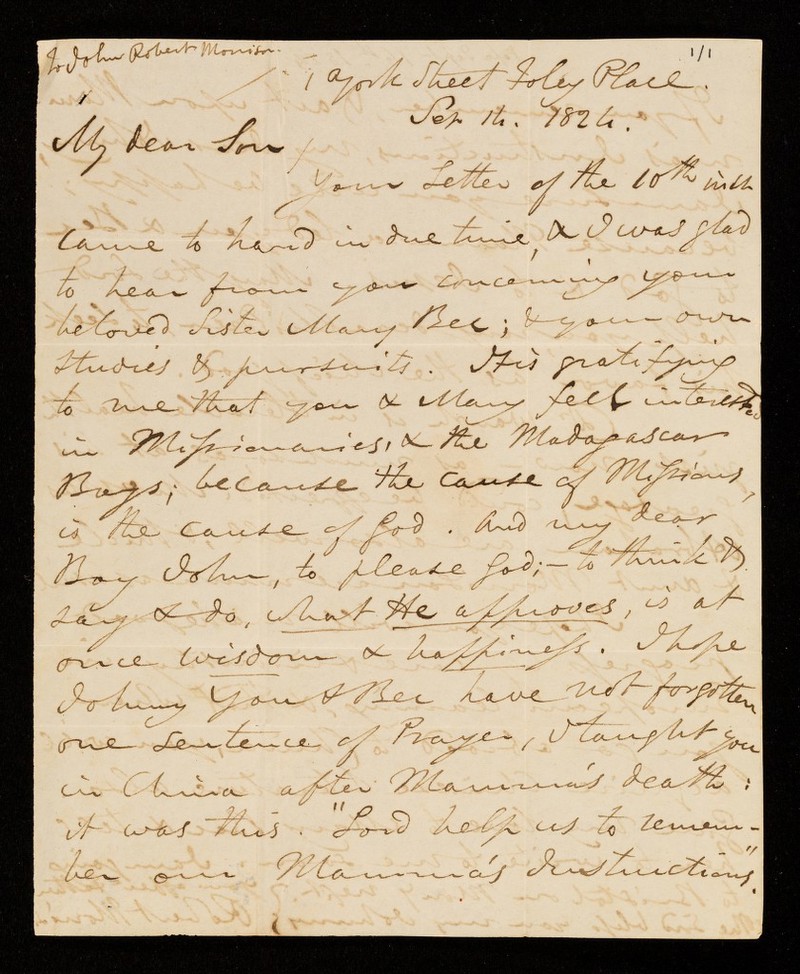 To John Robert Morrison.
1/1
1 York Street Foley Place.
Sep 14. 1824.
My dear Son
Your Letter of the 10th inst
came to hand in due time, & I was glad
to hear from you concerning your
beloved Sister Mary Bec; & your own
studies & pursuits. It is gratifying
to me that you & Mary feel interested
in Missionaries, & the Madagascar
Boys; because the cause of Missions,
is the cause of God. And my dear
Boy John, to please God;- to think &
say & do, what He approves, is at
once wisdom & happiness. I hope
Johnny You & Bec have not forgotten
one sentence of Prayer, I taught you
in China after Mamma's death:
it was this. "Lord help us to remem-
ber our Mamma's Instructions".